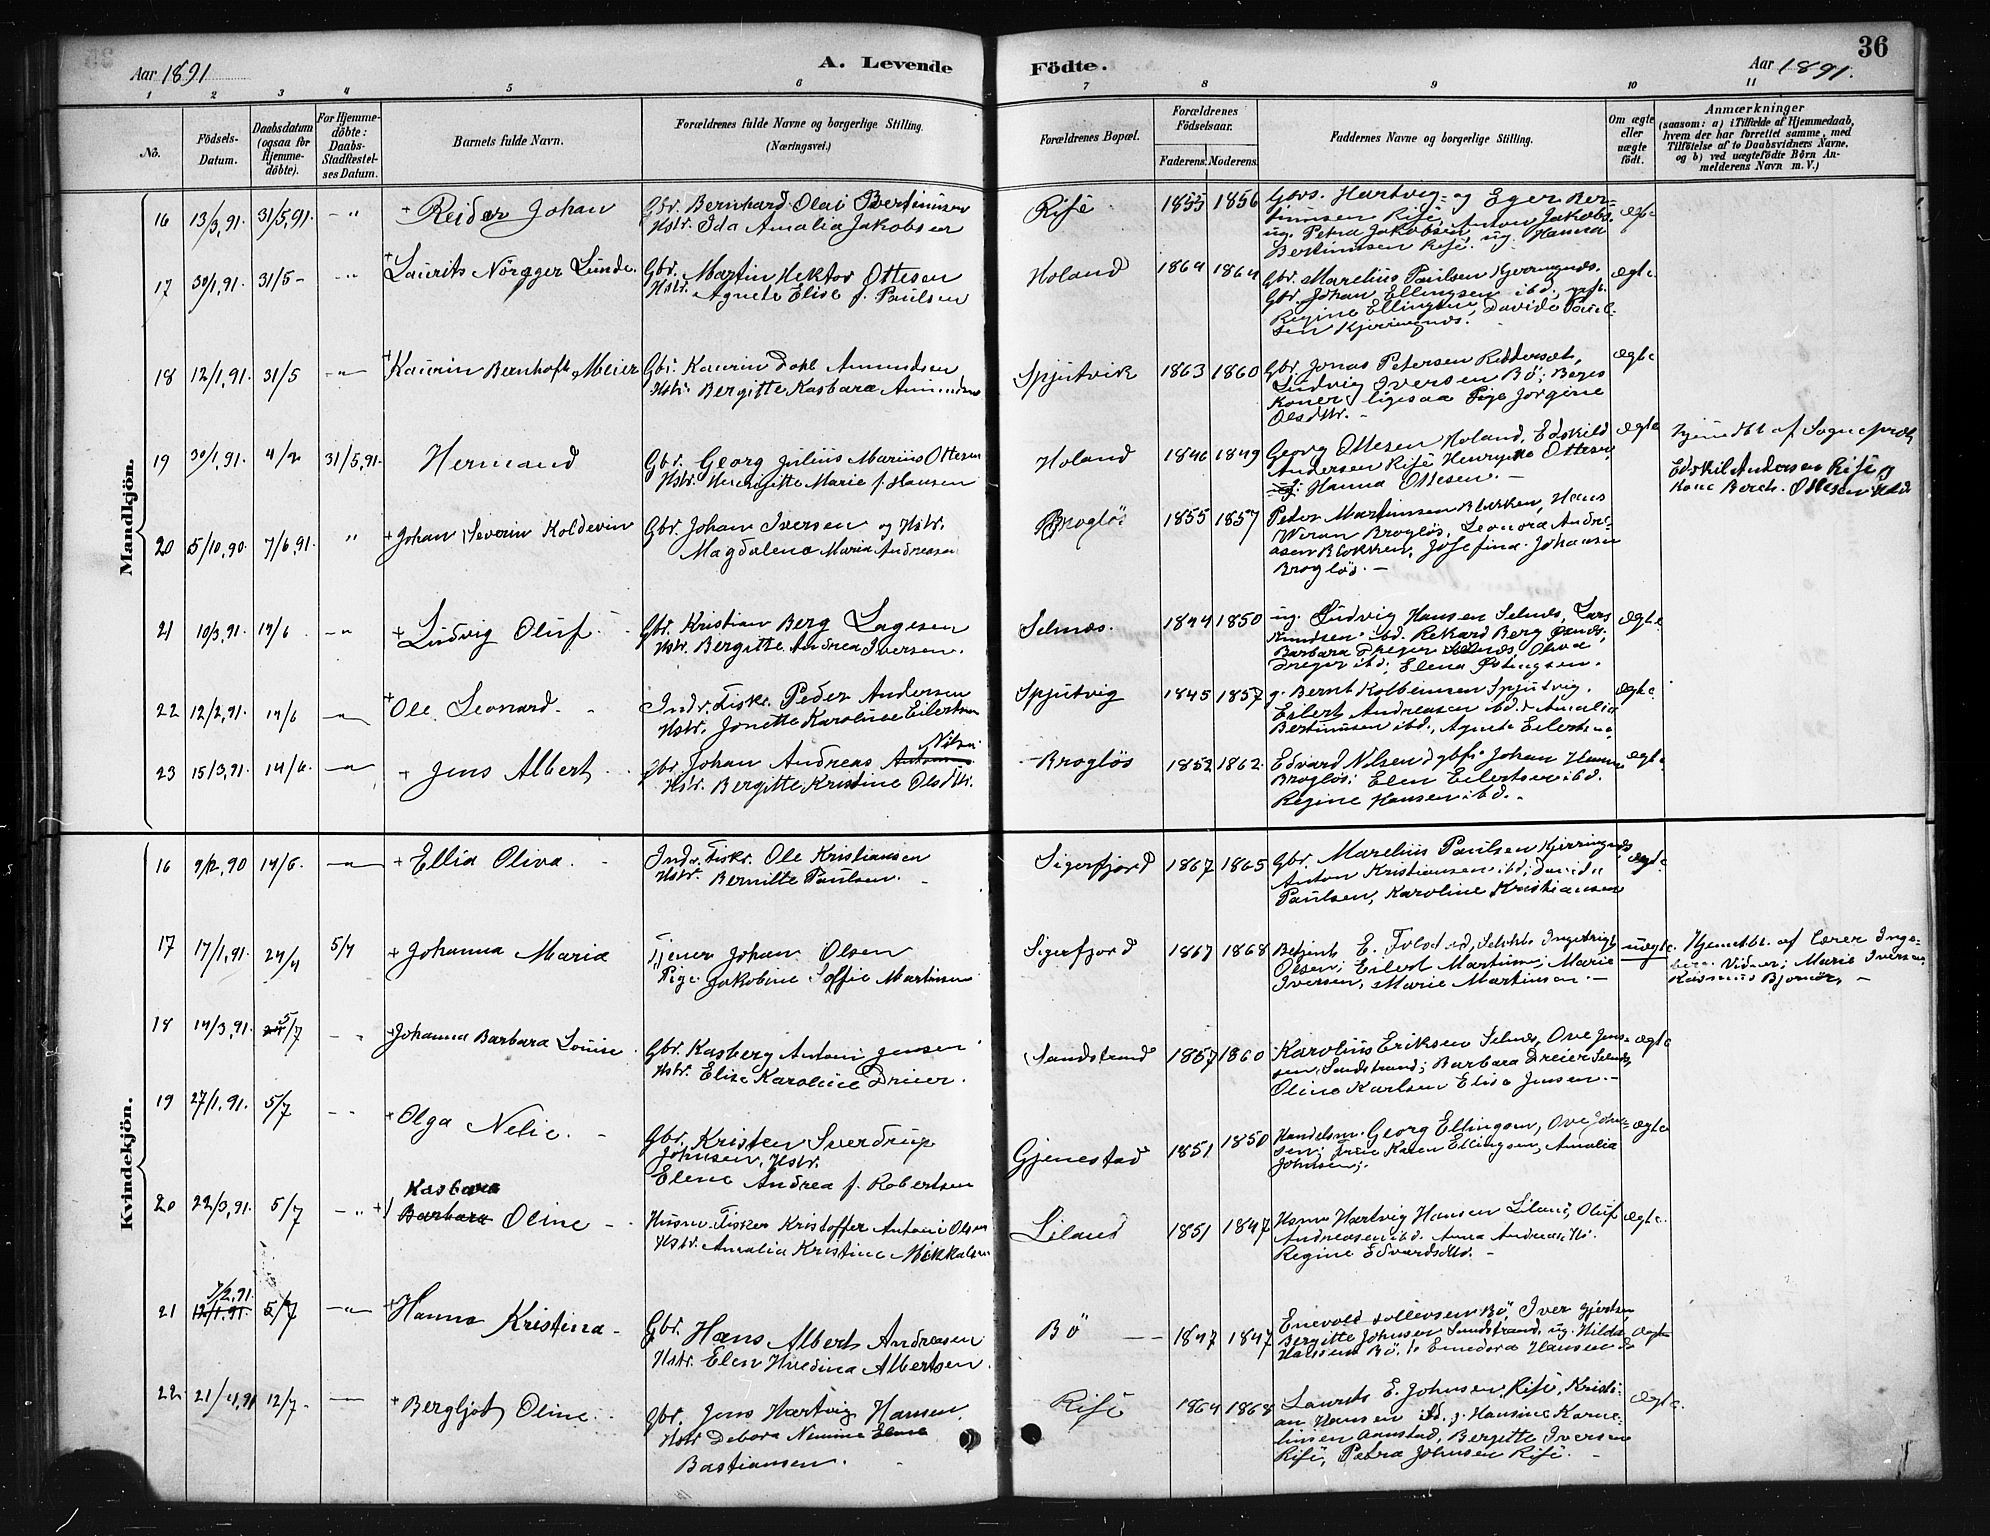 36
Aar 1891
A. Levende
Födte.
Aar 1891.
1 2 3 4 5 6 7 8 9 10 11
No.
Födsels-Datum.
Daabsdatum (ogsaa for Hjemme-döbte).
For Hjemme-döbte: Daabs-Stadfestel-ses Datum.
Barnets fulde Navn.
Forældrenes fulde Navne og borgerlige Stilling.
(Næringsvei.)
Forældrenes Bopæl.
Forældrenes Födselsaar.
Faderens. Moderens.
Faddernes Navne og borgerlige Stilling.
Om ægte eller uægte födt.
Anmærkninger
(saasom: a) i Tilfælde af Hjemmedaab,
hvem der har forrettet samme, med
Tilföielse af to Daabsvidners Navne,
og b) ved uægtefödte Börn An-
melderens Navn m. V.)
Mandkjön.
16 13/3,91. 31/5,91. - " + Reidar Johan
Gbr. Bernhard Olai Bertinusen
Hstr. Ida Amalia Jakobsen
Risö 1855 1856
Gbrs. Hartvig og Eger Ber-
tinusen Risö, Anton Jakobs.
ug. Petra Jakobsen, ug. Hanna
Bertinusen Risö.
ægte
17 30/1,91. 31/5 - "
+ Laurits Norøger Lunde.
Gbr. Martin Hektor Ottesen
Hstr. Agnete Elise f. Paulsen
Holand 1864 1864
Gbr. Marelius Paulsen Kjerringnds.
Gbr. Johan Ellingsen ibd.
Regine Ellingsen, Davida Paul-
sen Kjerringnds.
ægte
18 12/1,91. 31/5 - "
+ Kaurin Bernhoft Meier
Gbr. Kaurin Dahl Amundsen
Hstr. Bergitte Kasbara Amundsen
Spjutvik 1863 1860
Gbr. Jonas Petersen Reddersæt,
Ludvig Iversen Bö; Beges
Koner ligesaa Pige Jörgine
Olsdtr. -
ægte
19 30/1,91. 4/2 31/5,91. Hermand
Gbr. Georg Julius Marius Ottesen
Hstr. Henrijette Marie f. Hansen
Holand 1846 1849
Georg Ottesen Holand, Edskild
Andersen Risö Henrijette Ottesen,
Hanna Ottesen. -
ægte
hjemdbt. af Sognepræst
Edskil Andersen Risö og
Kone Berch. Ottesen ibd.
20 5/10,90. 7/6,91. "
+ Johan Severin Koldevin
Gbr. Johan Iversen og Hstr.
Magdalena Maria Andreasen
Brogløs 1855 1857
Peder Martinusen Blokken, Hans
Wiran Brogløs, Leonora Andre-
asen Blokken, Josefina Johansen
Brogløs. -
21 10/3,91. 14/6 - " -
+ Ludvig Oluf.
Gbr. Kristian Berg Lagesen
Hstr. Bergitte Andrea Iversen.
Selnæs. 1844 1850
ug. Ludvig Hansen Selnæs, Lars
Knudsen ibd. Rekard Berg Sands.
Barbara Dreyer Selnæs, Oliva
Dreyer ibd., Elena Østingsen.
ægte
22 12/2,91. 14/6 - " -
+ Ole Leonard.
Indr. Fiskr. Peder Andersen
Hstr. Jonette Karoline Eilertsen
Spjutvig 1845 1857
g. Bernt Kolbeinsen Spjutvig,
Eilert Andreasen ibd. Amalia
Bertinusen ibd., Agnete Eilertsen.
ægte
23 15/3,91. 14/6. - " -
+ Jens Albert
Gbr. Johan Andreas Nilsen
Hstr. Bergitte Kristine Olsdtr.
Brogløs 1852 1862.
Edvard Nilsen, Johan Hansen
Brogløs; Elen Eilertsen ibd.
Regine Hansen ibd. -
ægte
Kvindekjön.
16 9/12,90 14/6. - " -
+ Ellia Oliva.
Indr. Fiskr. Ole Kristiansen
Hstr. Bernitte Paulsen.
Sigerfjord 1867 1865
Gbr. Marelius Paulsen Kjerringnds,
Anton Kristiansen ibd. Davida
Paulsen, Karoline Kristiansen
ægte
17 17/1,91. 24/4 5/7
+ Johanna Maria
Tjener Johan Olsen
Pige Jakobine Soffie Martinsen
Sigerfjord 1867 1868
Olsen; Eilert Martinus; Marie
Iversen, Marie Martinsen. -
uægte.
Hjemdbt. af Lærer Inge-
Vidner; Marie Iversen,
Rasmus Bjornör. -
18 14/3,91. 5/7 - "
+ Johanna Barbara Louise
Gbr. Kasberg Antoni Jensen
Hstr. Elise Karoline Dreier.
Sandstrand 1857 1860
Karolius Eriksen Selnæs, Ove Jen-
sen Sandstrand; Barbara Dreier Selnæs,
Oline Karlsen Elise Jensen. -
ægte
19 27/1,91. 5/7 - "
+ Olga Nelie. -
Gbr. Kristen Sverdrup
Johnsen, Hstr.
Elene Andrea f. Robertsen
Gjenestad 1851 1850
Handelsm. Georg Ellingsen, Ove John-
sen; Frue Karen Ellingsen, Amalia
Johnsen;
ægte
20 22/3,91. 5/7 - "
Kasbara
+ Barbara Oline -
Husm. Fisker Kristoffer Antoni Olsen
Hstr. Amalia Kristine Mikkalsen
Liland 1851 1847
Hsm. Hartvig Hansen Liland, Oluf
Andreasen ibd. Anna Andreas.
Regine Edvardsdtr. -
ægte.
21 7/2,91. 12/1,91. 5/7 - " -
+ Hanna Kristina -
Gbr. Hans Albert Andreasen
Hstr. Elen Hvedina Albertsen.
Bö - - 1847 1847
Enevold Sollevsen Bö, Iver Gjertsen
Bergitte Johnsen Sandstrand, ug. Hilda
Hansen Bö. Emedora Hansen
ægte
22 21/4,91 12/7. - " -
+ Bergljot Oline.
Gbr. Jens Hartvig Hansen,
Hstr. Debora Nemine Elene
Bastiansen.
Risö 1864 1868
Laurits E. Johnsen, Risö, Kristi-
an Hansen ibd. g. Hansine Karne-
liusen Aanstad, Bergitte Iversen
Risö, Petra Johnsen Risö. -
ægte.